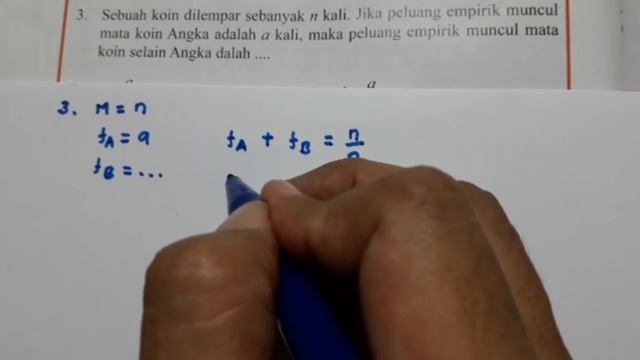 3. Sebuah koin dilempar sebanyak n kali. Jika peluang empirik muncul
mata koin Angka adalah a kali, maka peluang empirik muncul mata
koin selain Angka dalah ....
a
3. M = n
f_A = a
f_A + f_B = n/n
f_B = ...